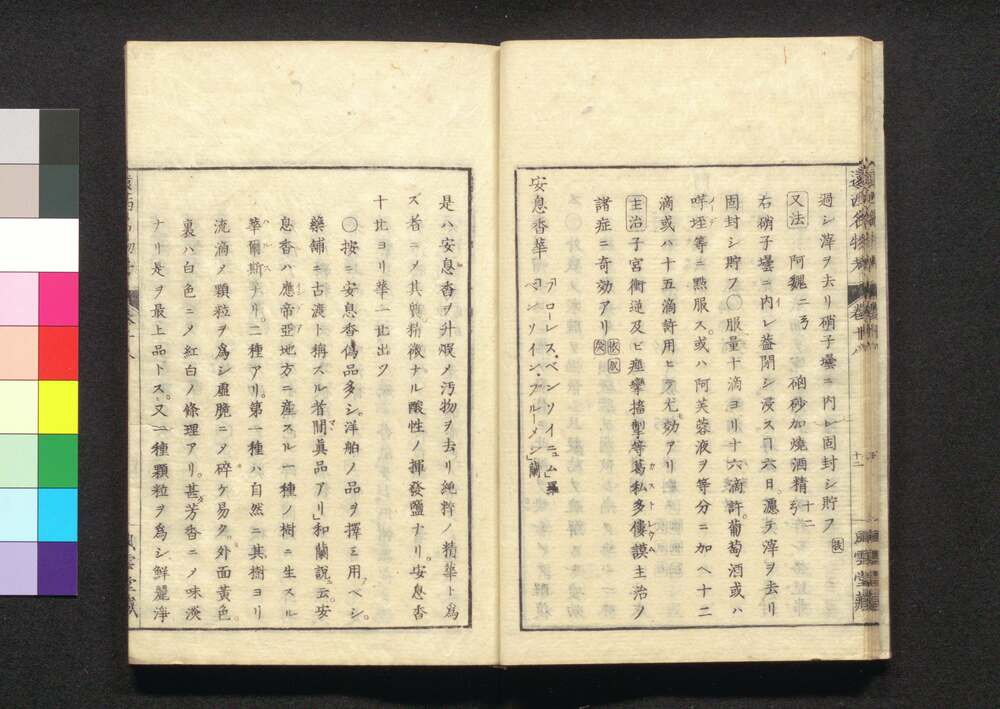 過シ滓ヲ去リ硝子壜ニ内レ固封シ貯フ
又法 阿魏二弓 硇砂加燒酒精十二弓
右硝子壜ニ内レ葢閉シ浸スヿ六日濾シテ滓ヲ去リ
固封シ貯フ〇服量十滴ヨリ十六滴許葡萄酒或ハ
等ニ點服ス或ハ阿芙蓉液ヲ等分ニ加ヘ十二
滴或ハ十五滴許用ヒテ尤効アリ
主治 子宮衝逆及ビ痙攣搐掣等葛私多僂謨主治ノ
諸症ニ奇効アリ
安息香華 フローレス・ベンソイニュム」羅 ベンソイン・ブルーメン」蘭
是ハ安息香ヲ升煆メ汚物ヲ去リ純粹ノ精華ト爲
ス者ニメ其鹽精微ナル酸性ノ揮發鹽ナリ安息香
十比ヨリ華一比出ツ
〇按ニ安息香僞品多シ洋舶ノ品ヲ擇ミ用ベシ
藥舗ニ古渡ト稱スル者間眞品アリ」和蘭說云安
息香ハ應帝亞地方ニ產スル一種ノ樹ニ生スル
華爾斯ナリ二種アリ第一種ハ自然ニ其樹ヨリ
流滴メ顆粒ヲ爲シ虛脆ニメ碎ケ易ク外面黃色
裏ハ白色ニメ紅白ノ條理アリ甚芳香ニメ味淡
ナリ是ヲ最上品トス又一種顆粒ヲ爲シ鮮麗淨